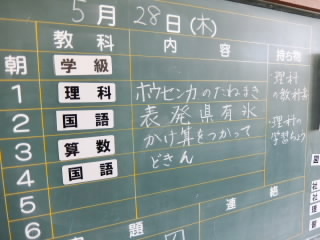 5月28日(木)
教科 内容 持ち物
朝 学級
1 理科 ホウセンカのたねまき ・理科の教科書
2 国語 表発県有氷 ・理科の学習ちょう
3 算数 かけ算をつかって
4 国語 どきん
5
6
連絡
題